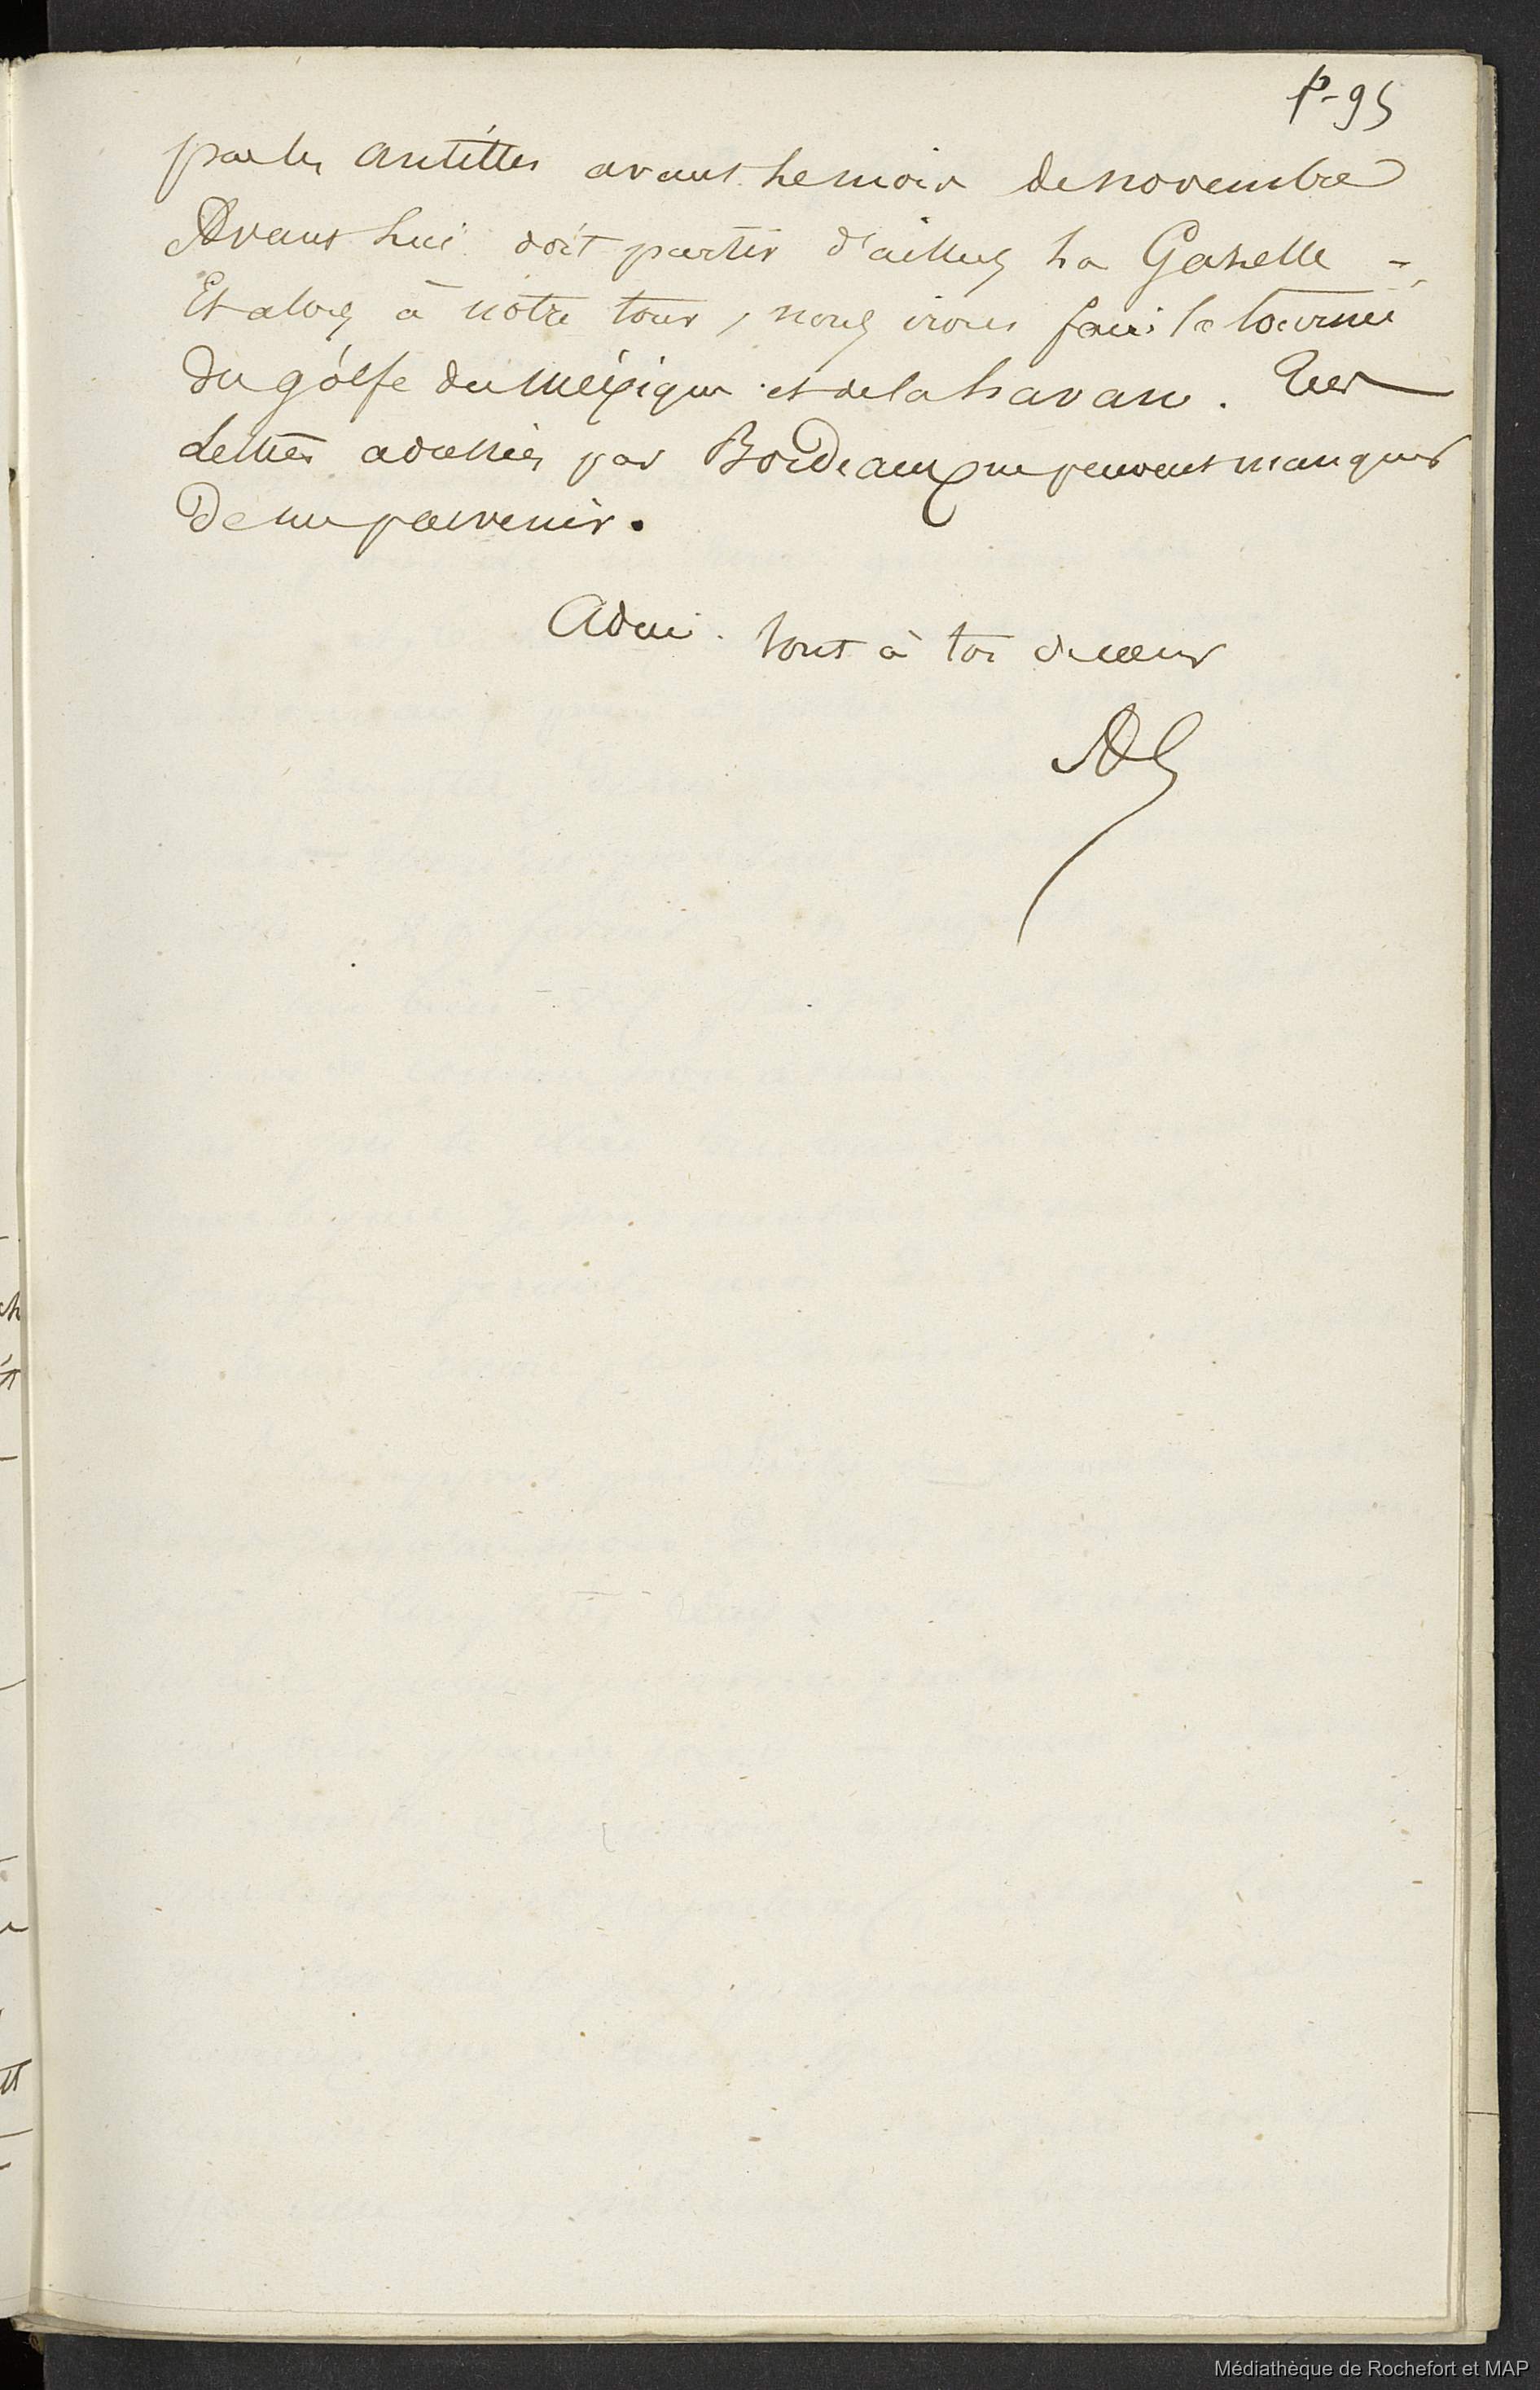 P-95
par les Antilles avant le mois de novembre
Avant lui doit partir d'ailleurs la Gazelle -
Et alors à notre tour, nous irons faire la tournée
du gölfe du Méxique et de la havane. Tes
Lettres adressées par Bordeaux ne peuvent manquer
De me parvenir.
Adieu. tout à toi de cœur
AG
Médiathèque de Rochefort et MAP